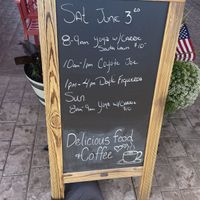 Sat June 3rd
8-9am Yoga w/Carrie
South Lawn $10
10am-1pm Coyote Joe
1pm-4pm Doyle Figueroa
Sun
8am-9am Yoga w/Carrie
$10
Delicious Food
+ Coffee